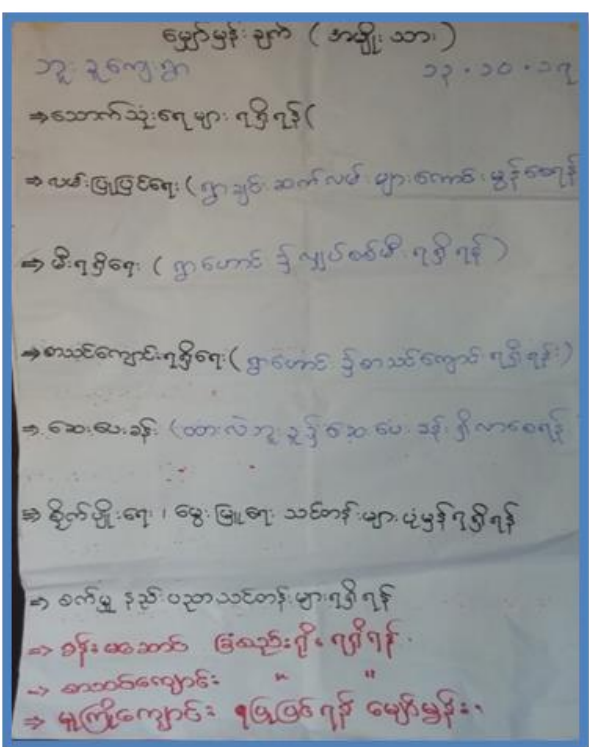 မျှော်မှန်းချက် (အမျိုးသား)
ဘူးခူကျေးရွာ ၁၃.၁၀.၁၇
⇒သောက်သုံးရေများရရှိရန်(
⇒လမ်းပြုပြင်ရေး(ရွာချင်းဆက်လမ်းများကောင်းမွန်စေရန်
⇒ မီးရရှိရေး (ရွာဟောင်း၌လျှပ်စစ်မီးရရှိရန်)
⇒စာသင်ကျောင်းရရှိရေး(ရွာဟောင်း၌စာသင်ကျောင်းရရှိရန်း)
⇒ ဆေးပေးခန်း (ထားလဲဘူးခူ၌ဆေးပေးခန်းရှိလာစေရန်
⇒ စိုက်ပျိုးရေး၊ မွေးမြူရေး သင်တန်းများပုံမှန်ရရှိရန်
⇒ စက်မှု နည်းပညာသင်တန်းများရရှိရန်
⇒ ခန်းမဆောင် ခြံစည်းရိုးရရှိရန်.
⇒ စာသင်ကျောင်း " "
⇒ မူကြိုကျောင်း ပြုပြင်ရန် မျှော်မှန်း.